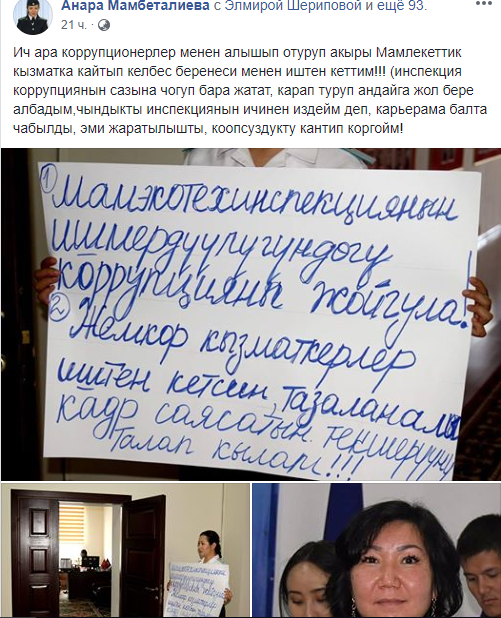 Анара Мамбеталиева с Элмирой Шериповой и ещё 93.
21 ч. ·
Ич ара коррупционерлер менен алышып отуруп акыры Мамлекеттик
кызматка кайтып келбес беренеси менен иштен кеттим!!! (инспекция
коррупциянын сазына чогуп бара жатат, карап туруп андайга жол бере
албадым,чындыкты инспекциянын ичинен издейм деп, карьерама балта
чабылды, эми жаратылышты, коопсуздукту кантип коргойм!
1) Мамэкотехинспекциянын
ишмердуулугундогу
коррупцияны жойгула!
2) Жемкор кызматкерлер
иштен кетсин, тазаланалы
кадр саясатын текшерууну
Талап кылам!!!